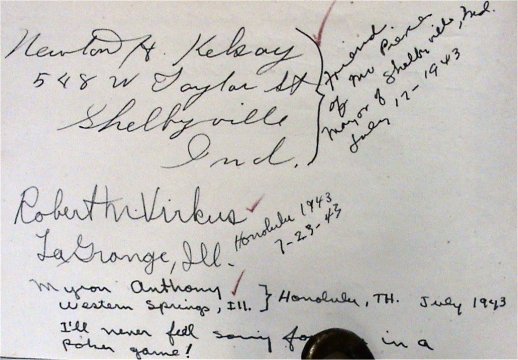 Newton H. Kelsay
548 W Taylor St
Shelbyville
Ind.
friend
of Mr Pierce
Mayor of Shelbyville, Ind.
July 17-1943
Robert M. Virkus
LaGrange, Ill.
Honolulu 1943
7-23-43
Myron Anthony
Western Springs, Ill.
Honolulu, TH. July 1943
I'll never feel sorry in a
Poker game!